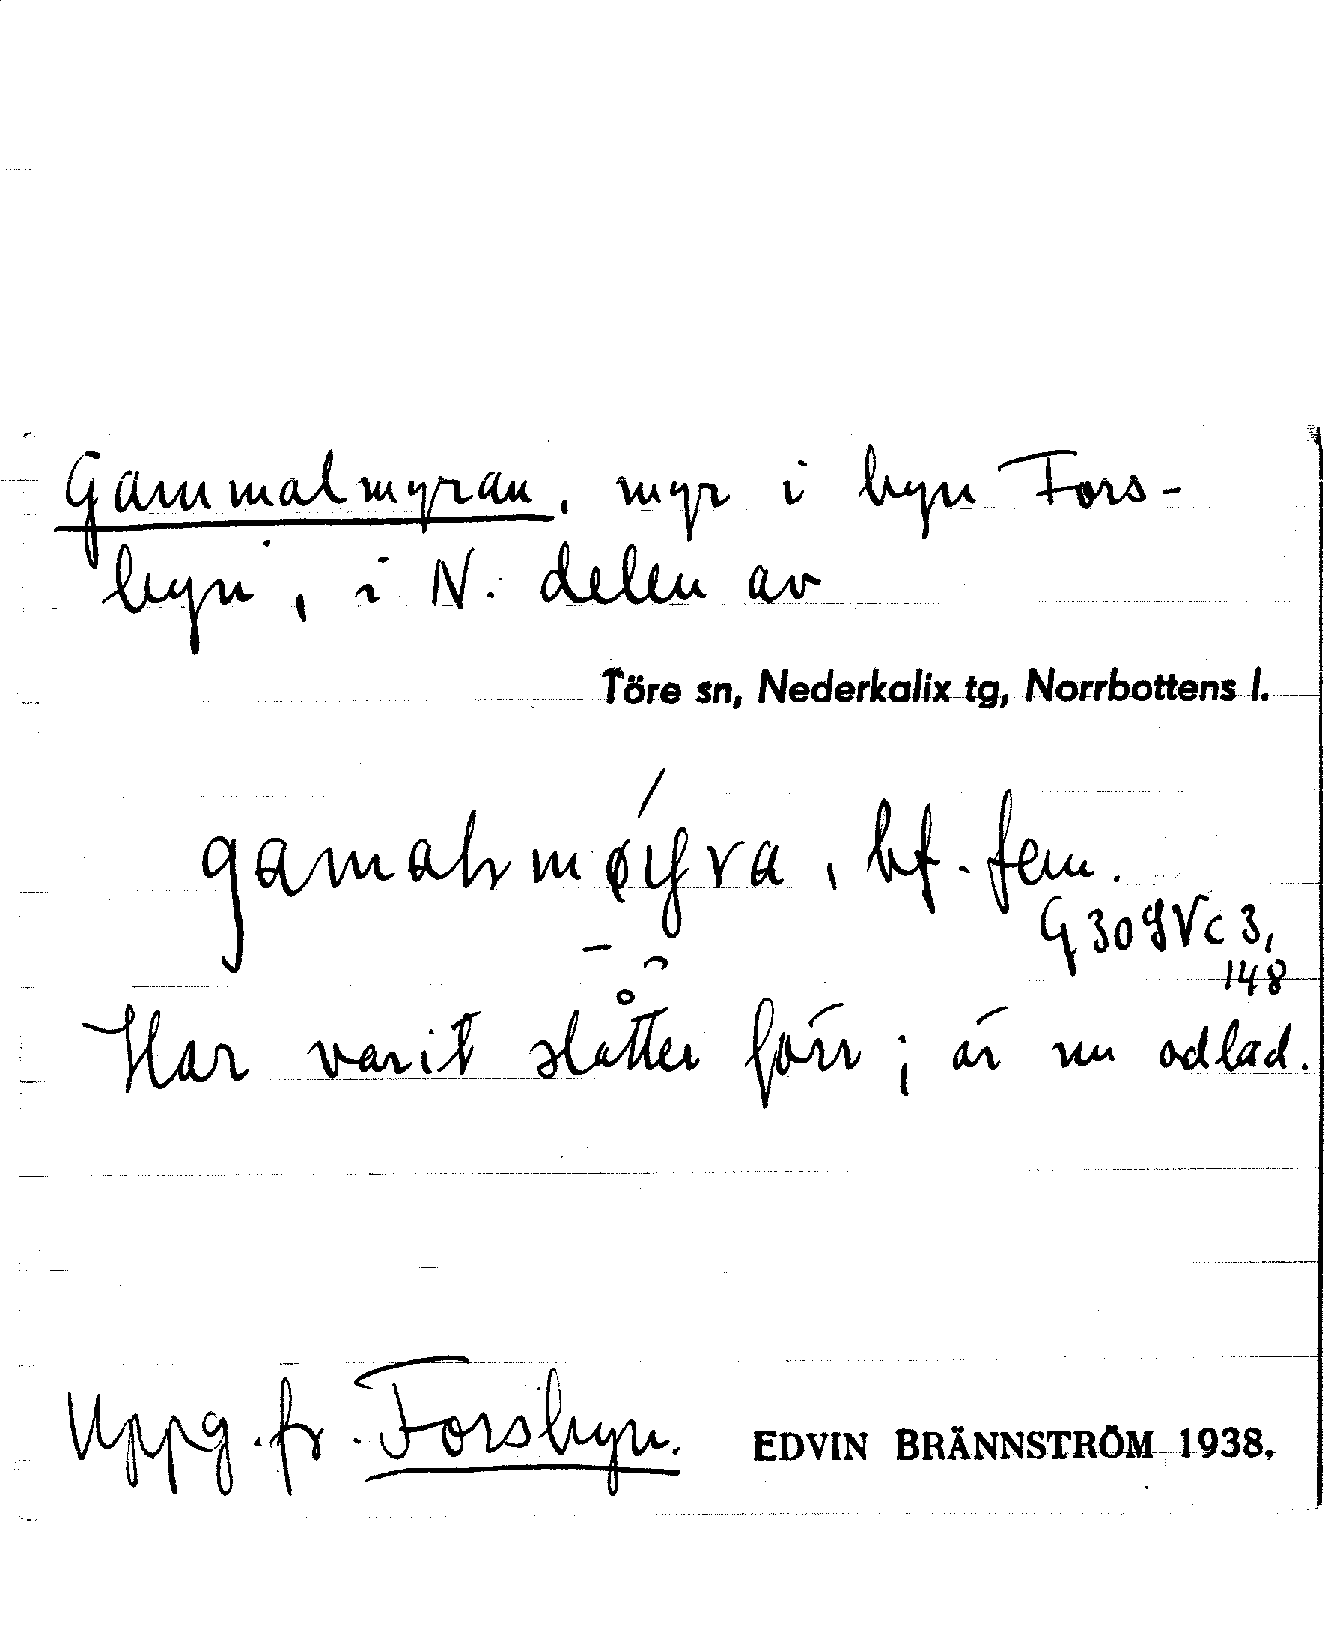 Gammalmyran, myr i byn Fors-
byn, i N. delen av
Töre sn, Nederkalix tg, Norrbottens l.
bf. fem.
G 30 9Vc 3,
148
Har varit slåtter förr; är nu odlad.
Uppg. fr. Forsbyn. EDVIN BRÄNNSTRÖM 1938.